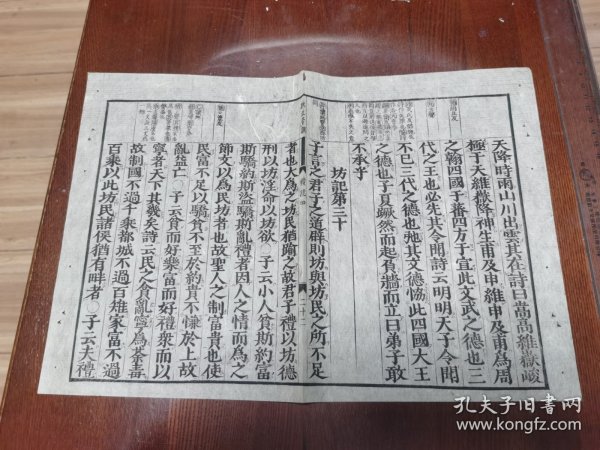 天降時雨山川出雲其在詩曰嵩高維嶽峻
極于天維嶽降神生甫及申維申及甫爲周
之翰四國于蕃四方于宣此文武之德也三
代之王也必先其令聞詩云明明天子令聞
不已三代之德也弛其文德協此四國大王
之德也子夏蹶然而起負牆而立曰弟子敢
不承乎
坊記第三十
子言之君子之道辟則坊與坊民之所不足
者也大爲之坊民猶踰之故君子禮以坊德
刑以坊淫命以坊欲 子云小人貧斯約富
斯驕約斯盜驕斯亂禮者因人之情而爲之
節文以爲民坊者也故聖人之制富貴也使
民富不足以驕貧不至於約貴不慊於上故
亂益亡 子云貧而好樂富而好禮衆而以
寧者天下其幾矣詩云民之貪亂寧爲荼毒
故制國不過千乘都城不過百雉家富不過
百乘以此坊民諸侯猶有畔者 子云夫禮
孔夫子旧书网
www.kongfz.com